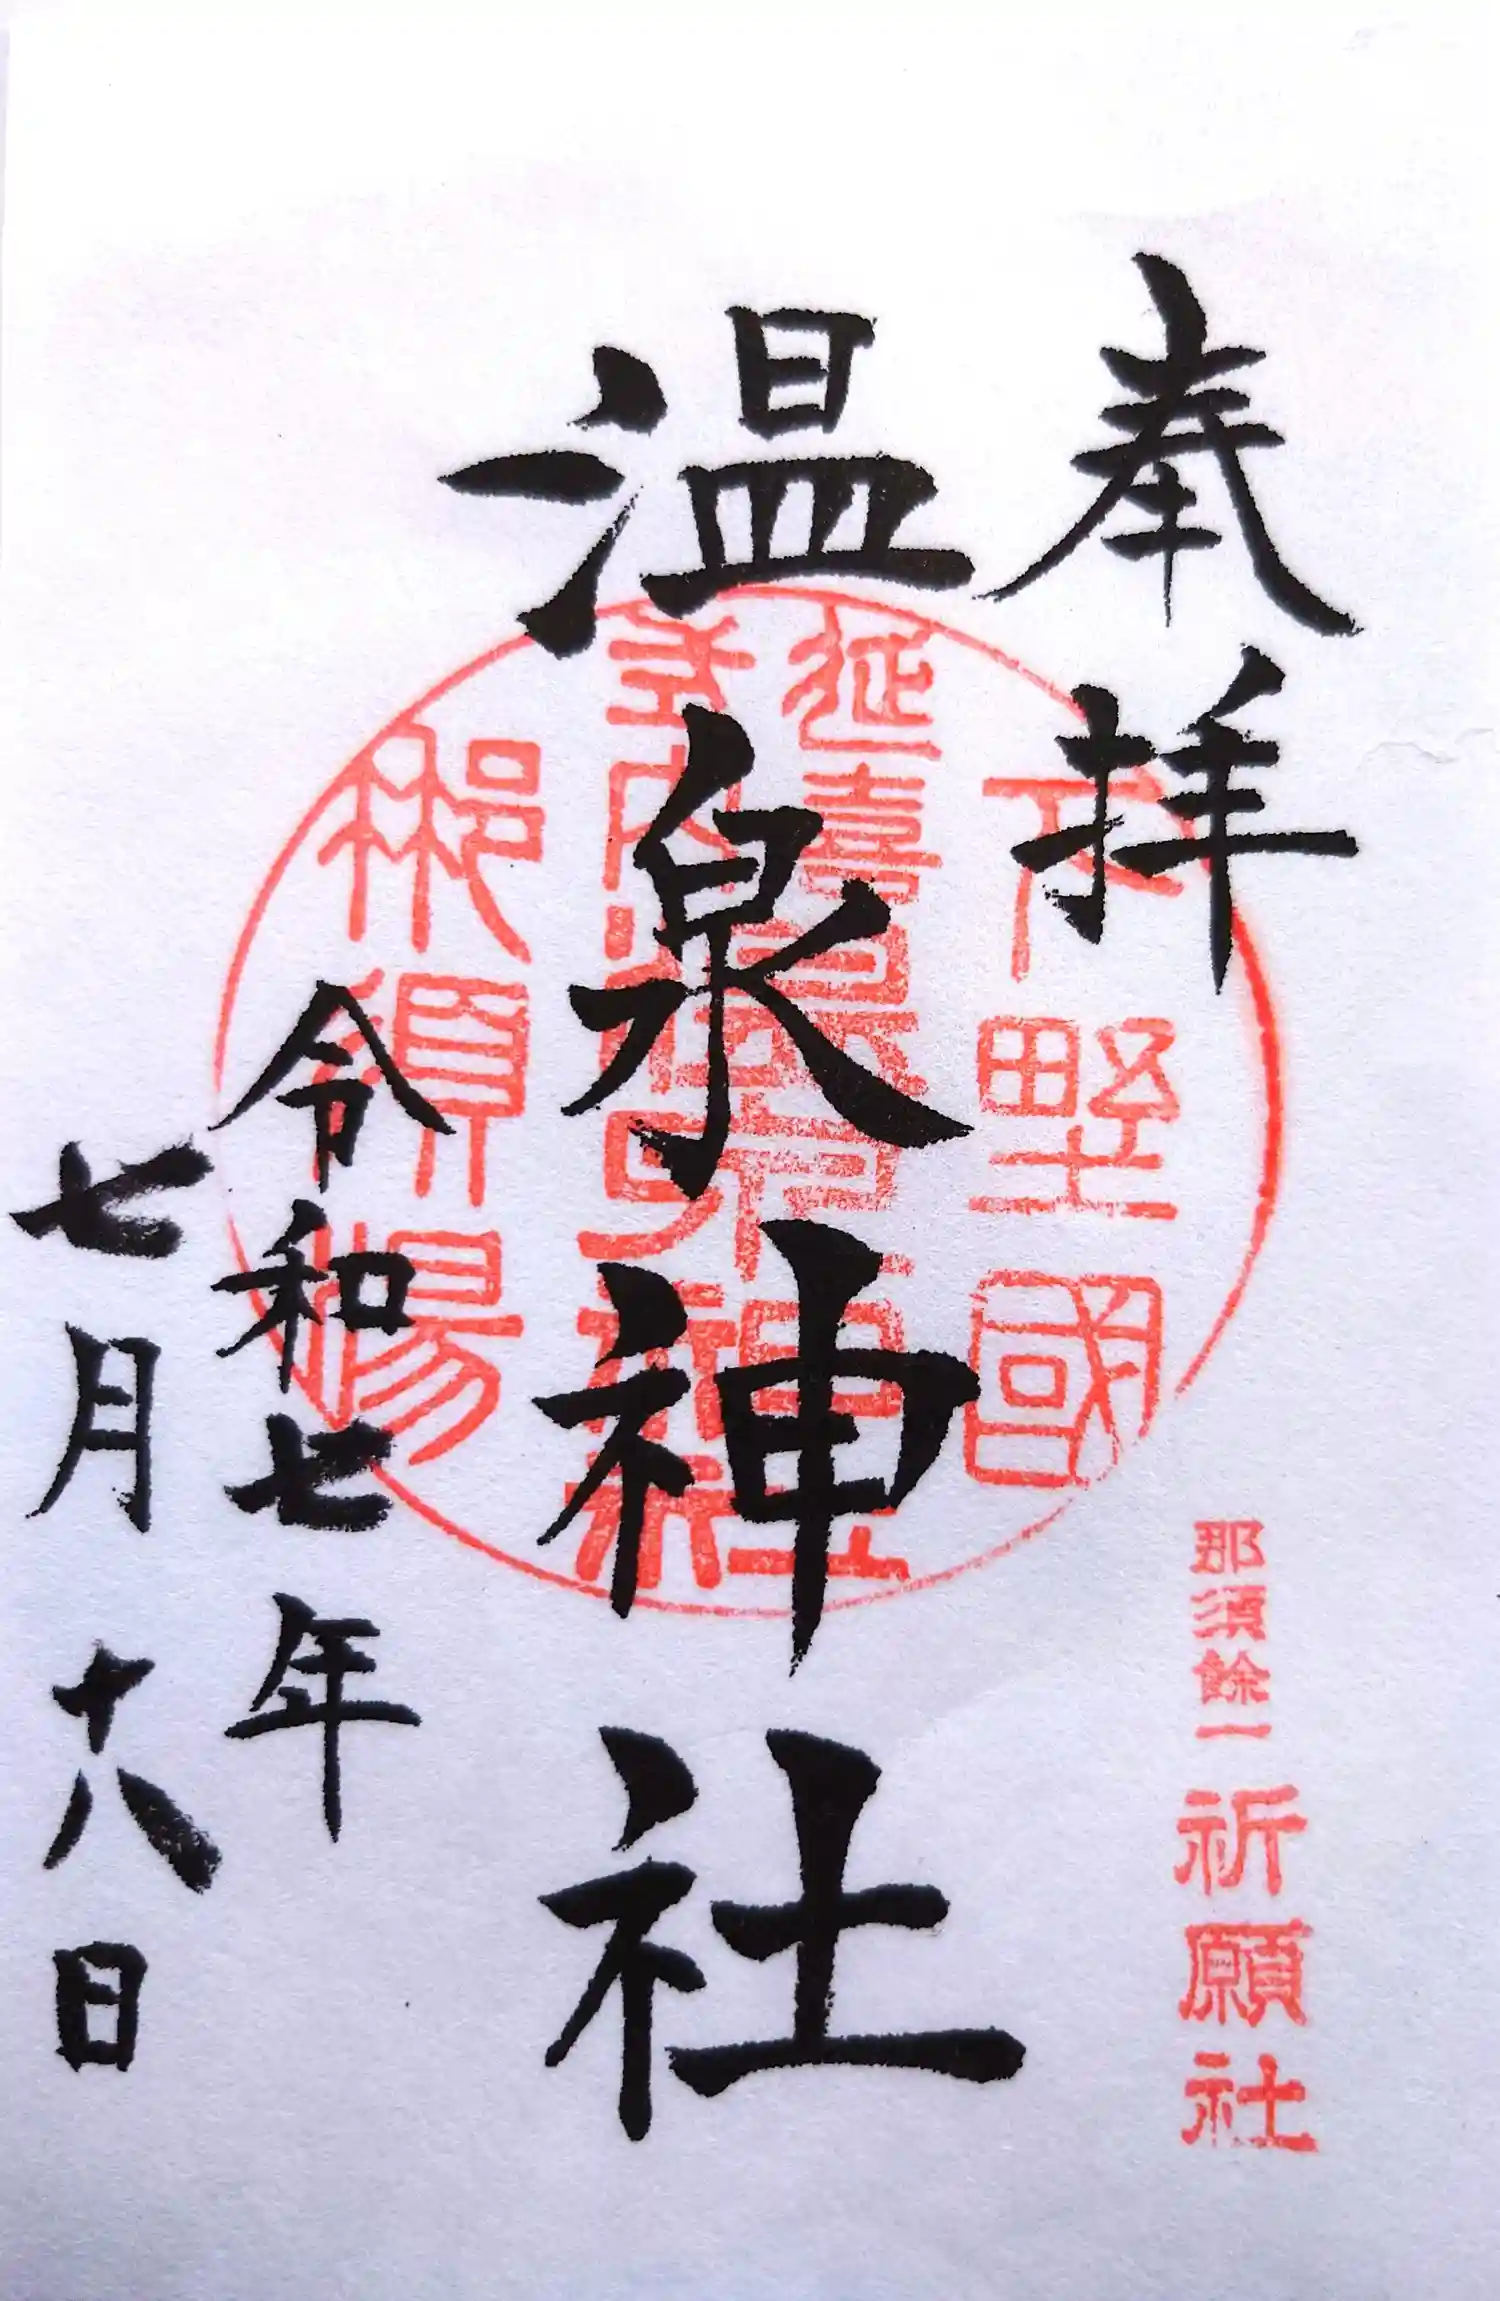 奉拝
下野國
延喜
式内温泉神社
那須湯
温泉神社
那須餘一
祈願社
令和七年
七月十八日